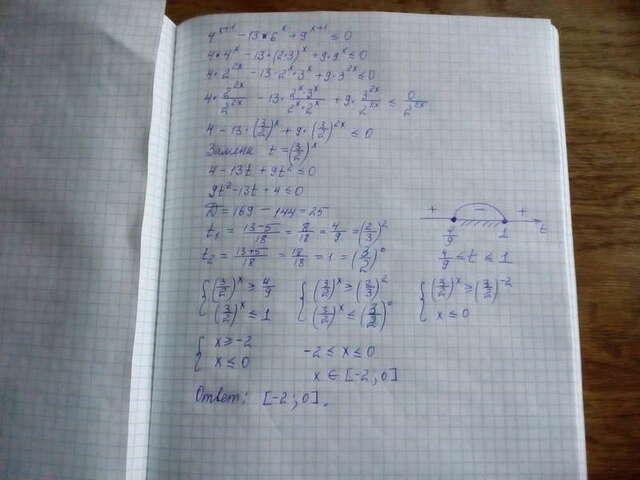 4^(x+1) - 13*6^x + 9^(x+1) ≤ 0
4*4^x - 13*(2*3)^x + 9*9^x ≤ 0
4*2^(2x) - 13*2^x*3^x + 9*3^(2x) ≤ 0
4*2^(2x)/2^(2x) - 13*(2^x*3^x)/(2^x*2^x) + 9*3^(2x)/2^(2x) ≤ 0/2^(2x)
4 - 13*(3/2)^x + 9*(3/2)^(2x) ≤ 0
Замена t = (3/2)^x
4 - 13t + 9t² ≤ 0
9t² - 13t + 4 ≤ 0
D = 169 - 144 = 25
+ - +
t₁ = (13-5)/18 = 8/18 = 4/9 = (2/3)²
4/9 1 t
t₂ = (13+5)/18 = 18/18 = 1 = (3/2)^0
4/9 ≤ t ≤ 1
{ (3/2)^x ≥ 4/9 { (3/2)^x ≥ (2/3)² { (3/2)^x ≥ (3/2)^(-2)
(3/2)^x ≤ 1 (3/2)^x ≤ (3/2)^0 x ≤ 0
{ x ≥ -2
x ≤ 0 -2 ≤ x ≤ 0
x ∈ [-2; 0]
Ответ: [-2; 0].